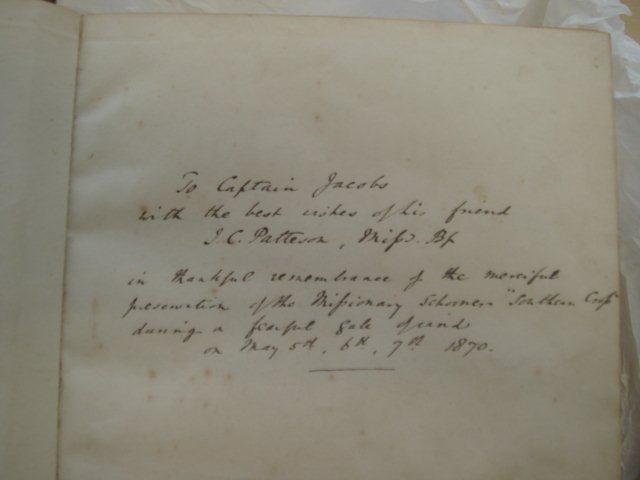 To Captain Jacobs
with the best wishes of his friend
J. C. Patteson, Missy. Bp
in thankful remembrance of the merciful
preservation of the Missionary Schooner "Southern Cross"
during a fearful gale of wind
on May 5th, 6th, 7th 1870.